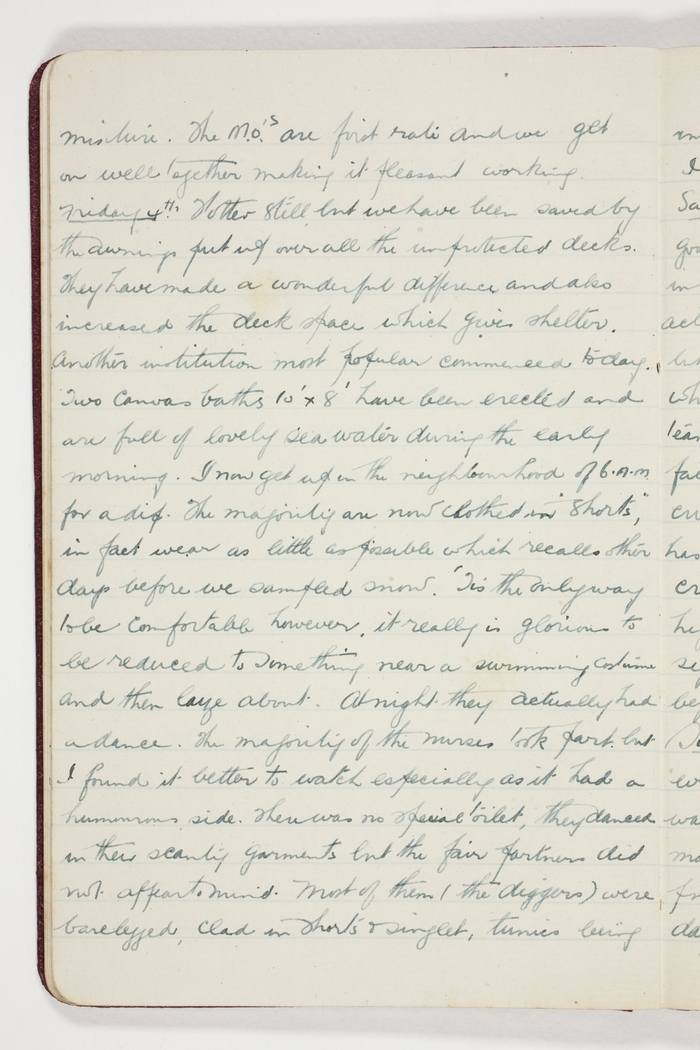 mixture. The M.O.'s are first rate and we get
on well together making it pleasant working.
Friday 4th. Hotter still but we have been saved by
the awnings put up over all the unprotected decks.
They have made a wonderful difference and also
increased the deck space which gives shelter.
Another institution most popular commenced today.
Two canvas baths 10' x 8' have been erected and
are full of lovely sea water during the early
morning. I now get up in the neighbourhood of 6.A.M.
for a dip. The majority are now clothed in "Shorts",
in fact wear as little as possible which recalls other
days before we sampled snow. 'Tis the only way
to be comfortable however, it really is glorious to
be reduced to something near a swimming costume
and then laze about. At night they actually had
a dance. The majority of the nurses took part but
I found it better to watch especially as it had a
humourous side. There was no special toilet, they danced
in their scanty garments but the fair partners did
not appear to mind. Most of them (the diggers) were
barelegged, clad in shorts & singlet, tunics being
in
I
Sa
goo
in
act
bu
wh
lear
fac
cru
has
cr
hi
se
be
ev
wa
mo
fr
da